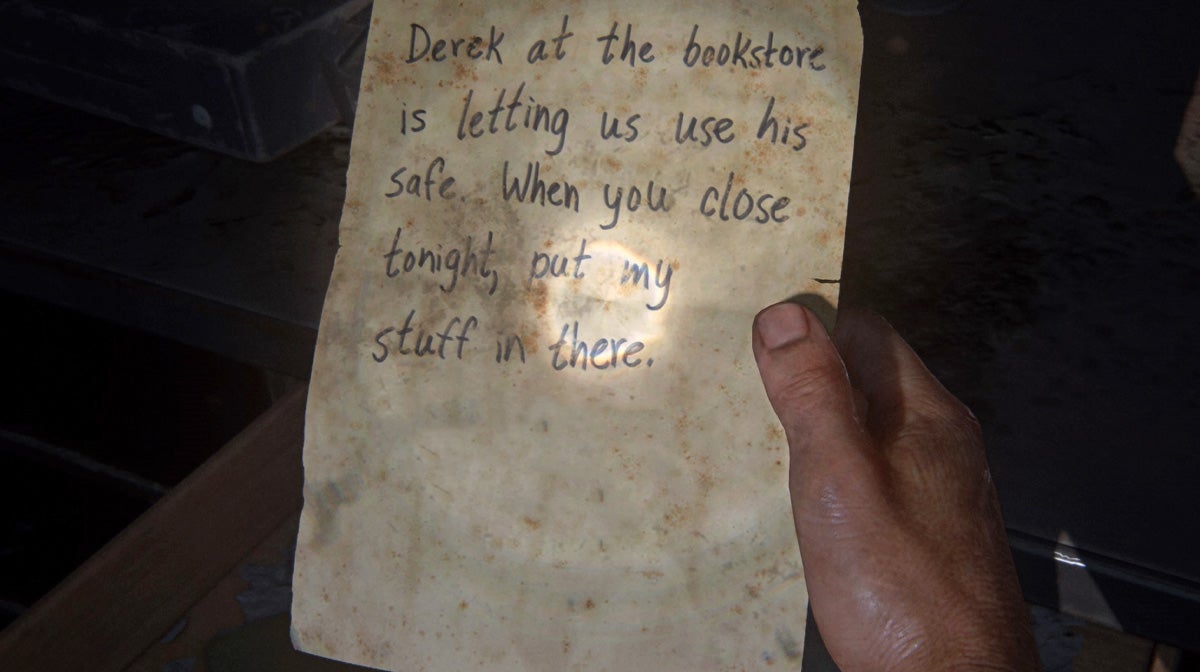 Derek at the bookstore
is letting us use his
safe. When you close
tonight, put my
stuff in there.